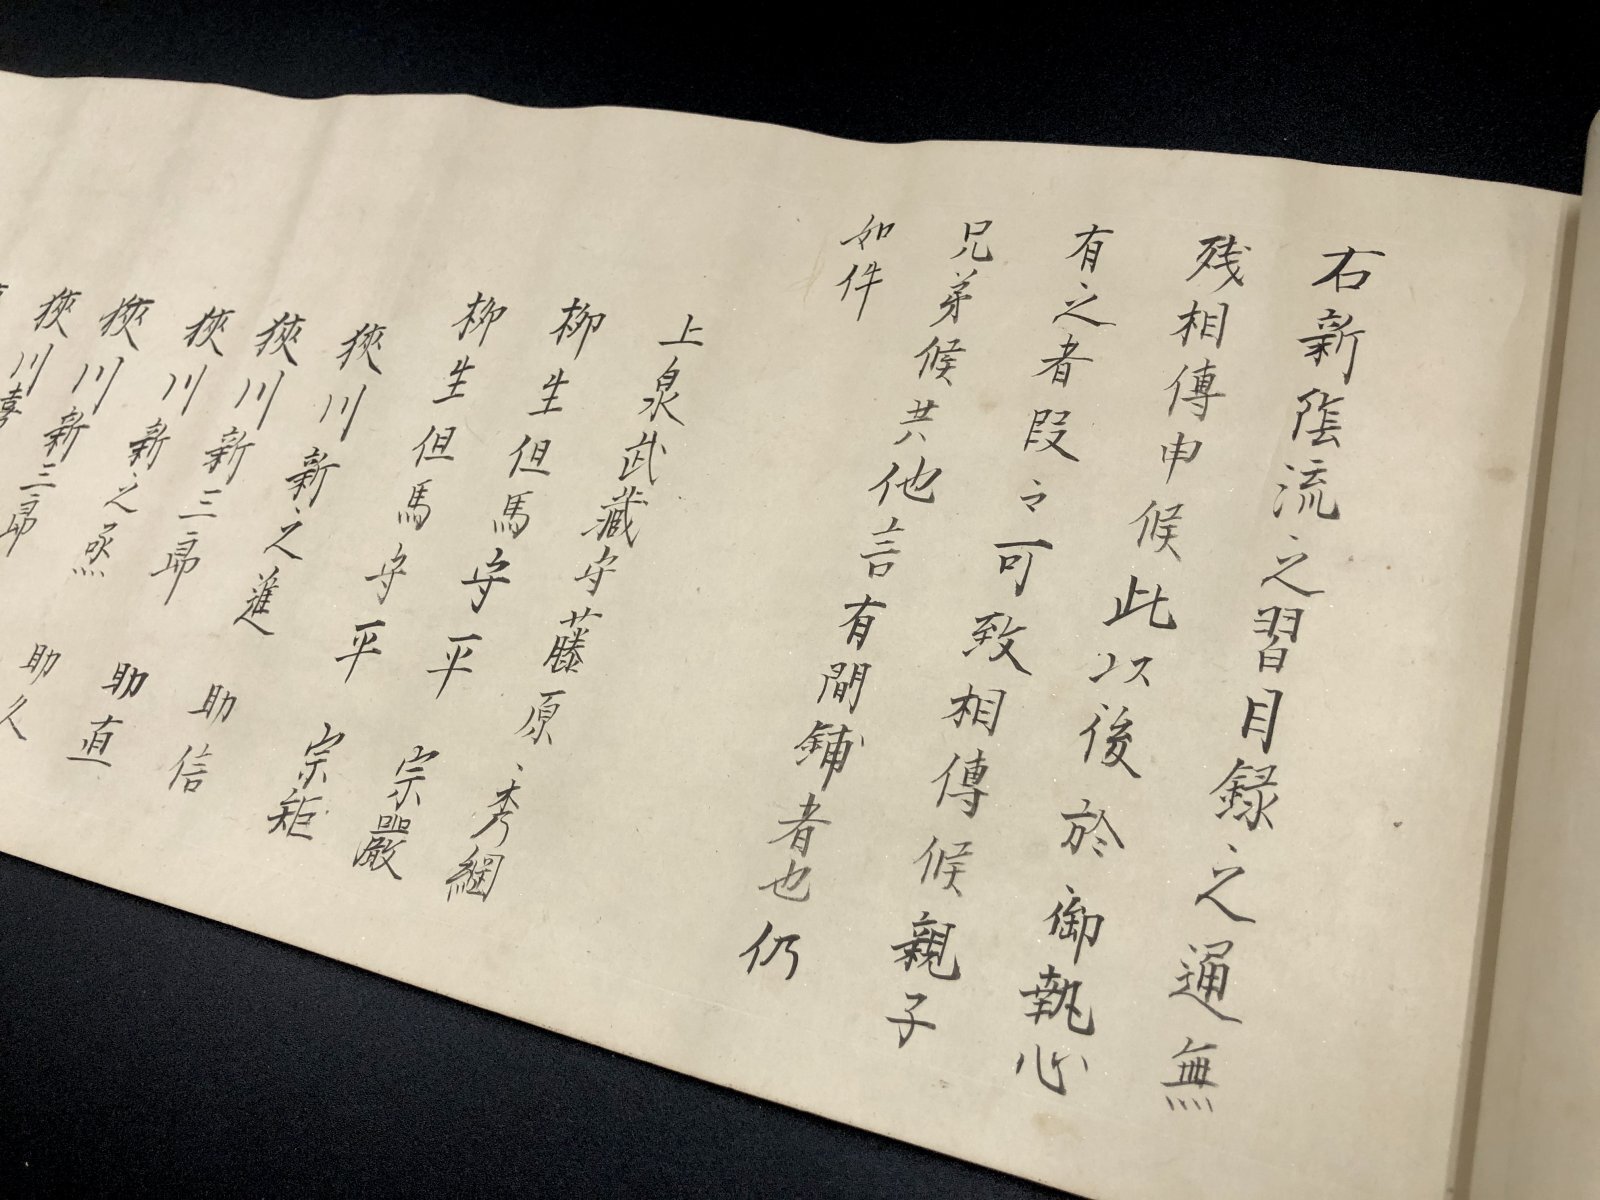 右新陰流之習目録之通無
残相傳申候此以後於御執心
有之者段々可致相傳候親子
兄弟候共他言有間鋪者也仍
如件
上泉武蔵守藤原、秀綱
柳生但馬守平 宗嚴
柳生但馬守平 宗矩
狹川新之進 助信
狹川新三郎 助直
狹川新之丞 助久
狹川新三郎
狹川喜